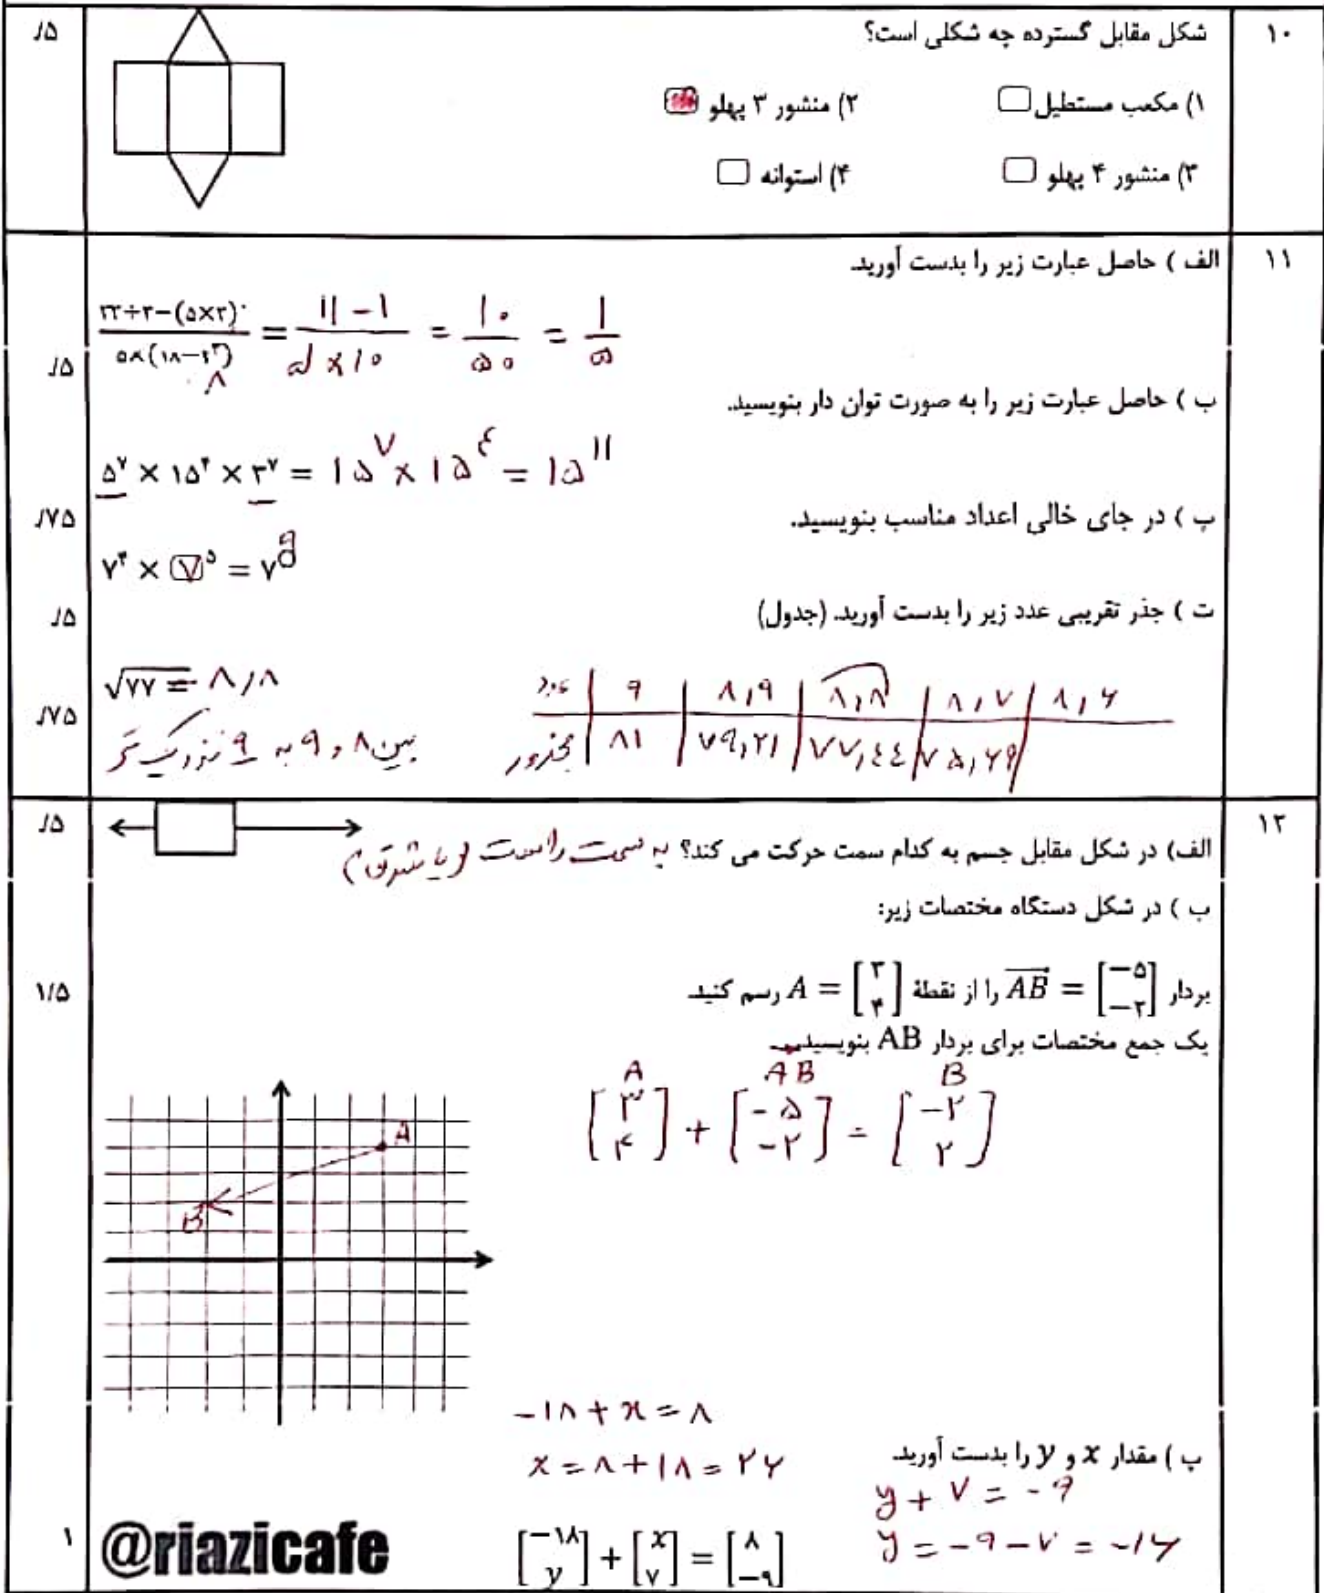 ۱۰
شکل مقابل گسترده چه شکلی است؟
/۵
۱) مکعب مستطیل ۲) منشور ۳ پهلو
۳) منشور ۴ پهلو ۴) استوانه
۱۱
الف ) حاصل عبارت زیر را بدست آورید.
(۲۲÷۲−(۵×۳)۰)/(۵×(۱۸−۲۳)) = (۱۱ − ۱)/(۵ × ۱۰) = ۱۰/۵۰ = ۱/۵
۸
/۵
ب ) حاصل عبارت زیر را به صورت توان دار بنویسید.
۵⁷ × ۱۵⁴ × ۳⁷ = ۱۵⁷ × ۱۵⁴ = ۱۵¹¹
/۷۵
پ ) در جای خالی اعداد مناسب بنویسید.
۷⁴ × ۷⁵ = ۷⁹
/۵
ت ) جذر تقریبی عدد زیر را بدست آورید. (جدول)
√۷۷ = ۸/۸
عدد | ۹ | ۸,۹ | ۸,۸ | ۸,۷ | ۸,۶
مجذور | ۸۱ | ۷۹,۲۱ | ۷۷,۴۴ | ۷۵,۶۹
/۷۵
بین ۸ و ۹ به ۹ نزدیک تر
۱۲
/۵
الف) در شکل مقابل جسم به کدام سمت حرکت می کند؟ به سمت راست (یا شرق)
ب ) در شکل دستگاه مختصات زیر:
۱/۵
بردار AB = [−۵ −۲] را از نقطهٔ A = [۳ ۴] رسم کنید.
یک جمع مختصات برای بردار AB بنویسید.
A AB B
[۳ ۴] + [−۵ −۲] = [−۲ ۲]
A
B
پ ) مقدار x و y را بدست آورید.
−۱۸ + x = ۸
x = ۸ + ۱۸ = ۲۶
y + ۷ = −۹
y = −۹ − ۷ = −۱۶
[−۱۸ y] + [x ۷] = [۸ −۹]
۱
@riazicafe